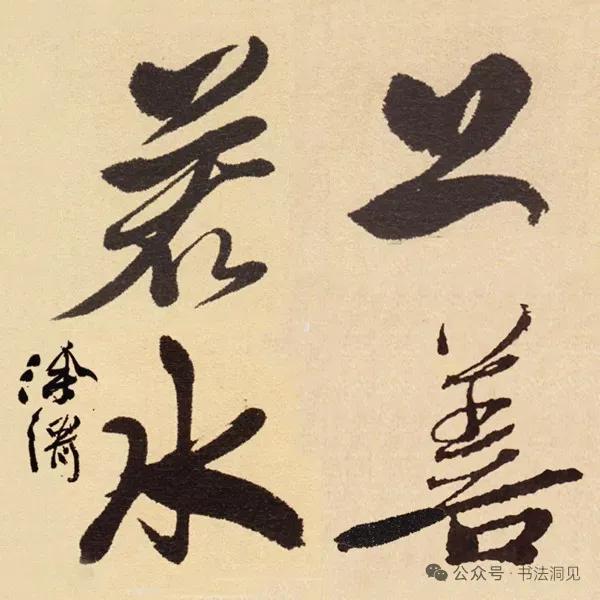 上善
若水
溥儒
公众号·书法洞见